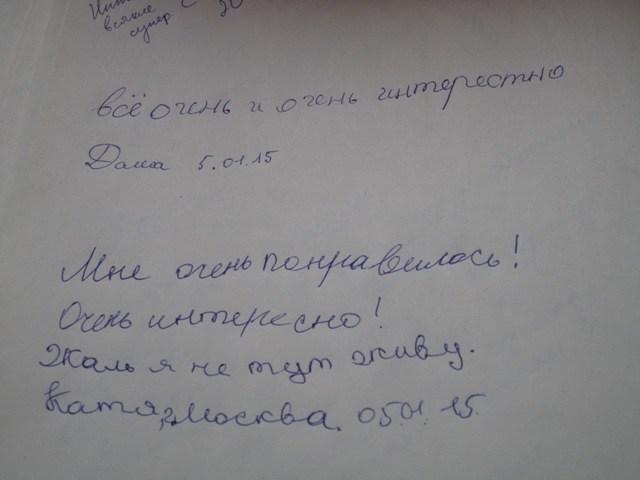 всякие
супер.
всё очень и очень интерестно
Даша 5.01.15
Мне очень понравилось!
Очень интересно!
Жаль я не тут живу.
Катя, г. Москва. 05.01.15.